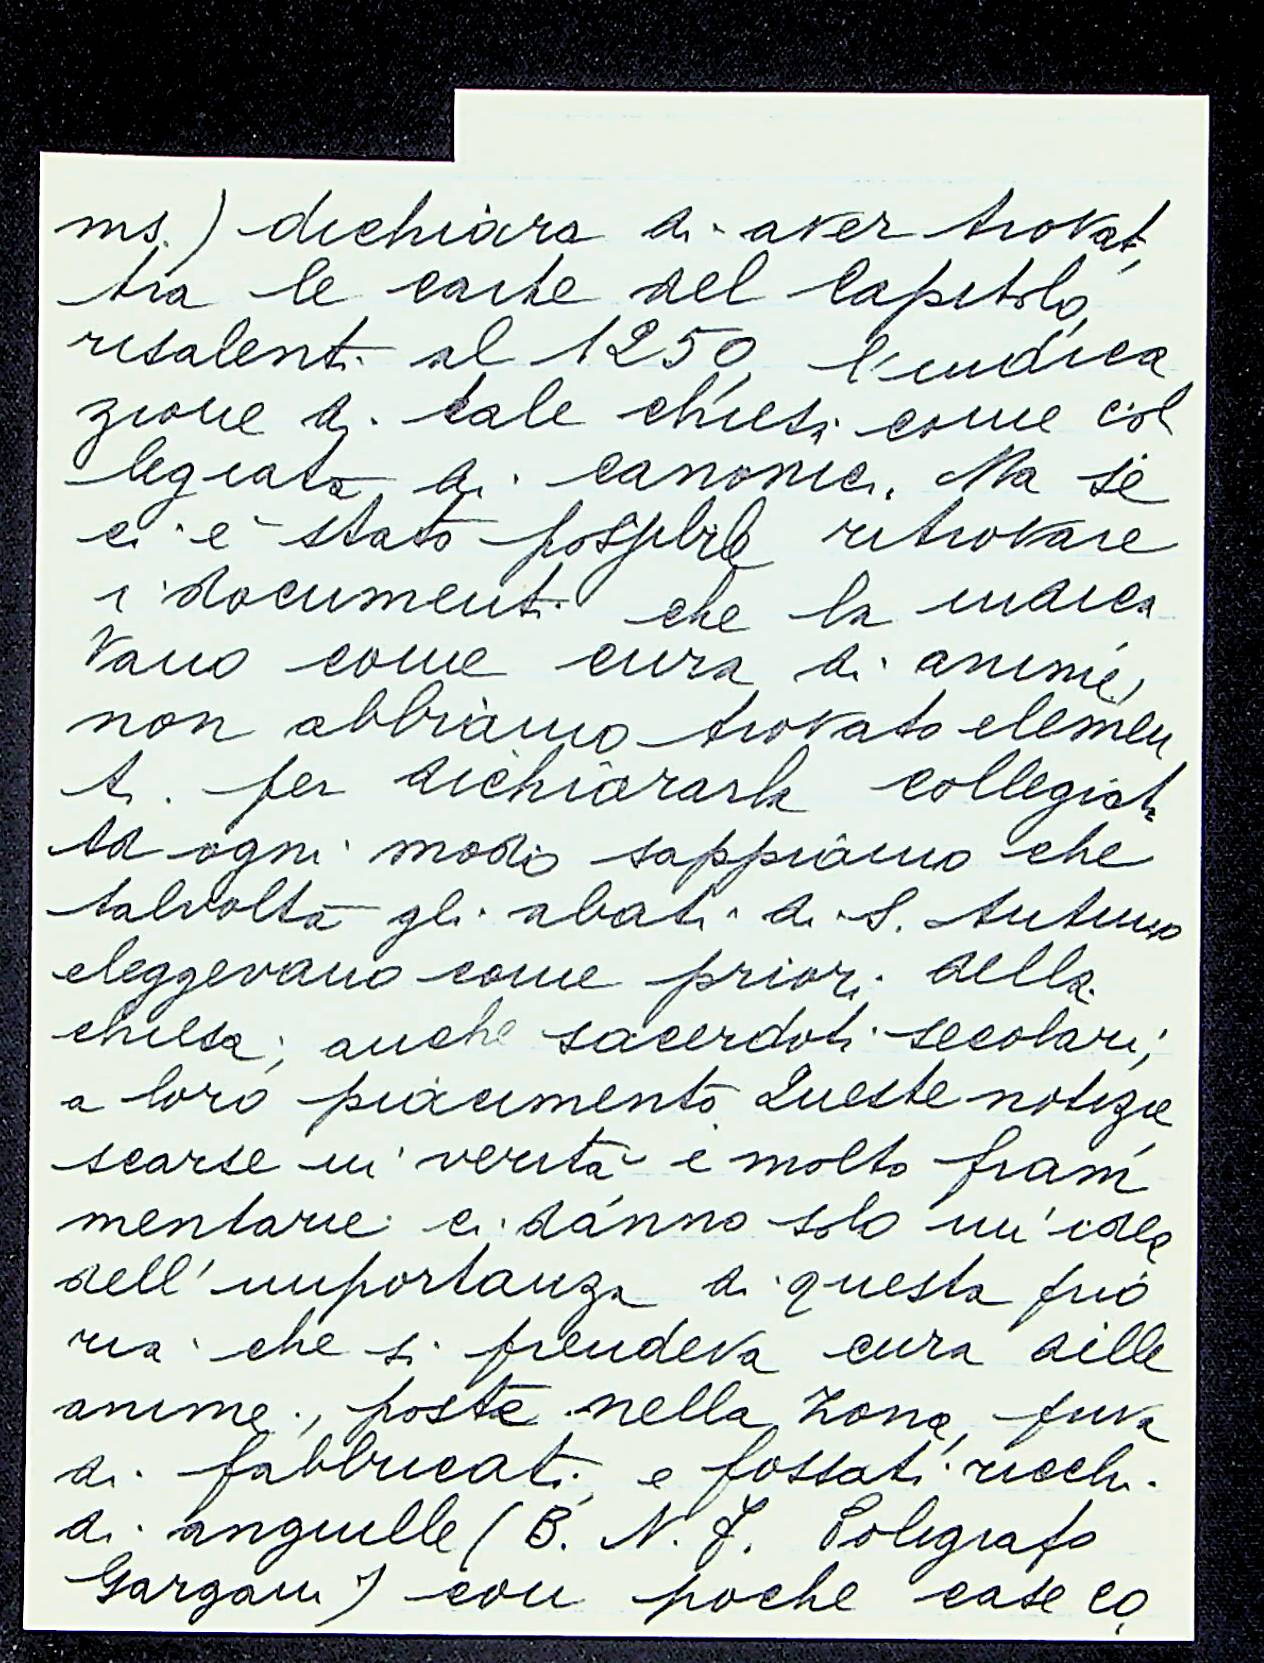 ms.) dichiara di aver trovat
tra le carte del Capitolo,
risalenti al 1250, l'indica
zione di tale chiesa come col
legiata di canonici. Ma se
ci è stato possibile ritrovare
i documenti che la indica
vano come cura di anime,
non abbiamo trovato elemen
ti per dichiararla collegiata
Ad ogni modo sappiamo che
talvolta gli abati di S. Antimo
eleggevano come priori della
chiesa, anche sacerdoti secolari,
a loro piacimento Queste notizie
scarse in verità e molto fram
mentarie ci danno solo un'idea
dell'importanza di questa prio
ria che si prendeva cura delle
anime, poste nella zona, priva
di fabbricati, e fossati ricchi
di anguille (B. N. F. Poligrafo
Gargani) con poche case co